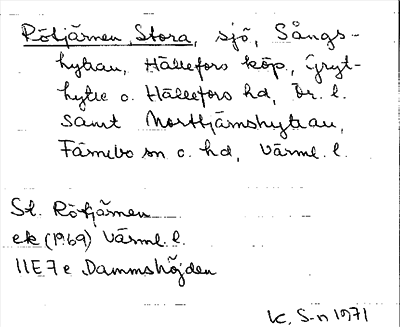 Rötjärnen, Stora, sjö, Sångs-
hyttan, Hällefors köp, Gryt-
hytte o. Hällefors hd, Ör. l.
samt Norrtjärnshyttan,
Färnebo sn o. hd, Värml. l.
St. Rötjärnen
ek (1969) Värml. l.
11E7e Dammshöjden
K. S-n 1971